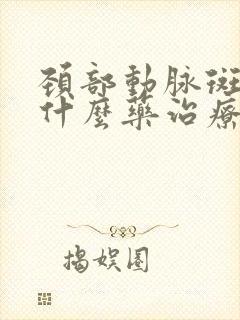 頸部動脉斑
什麼藥治療
揭娱圈